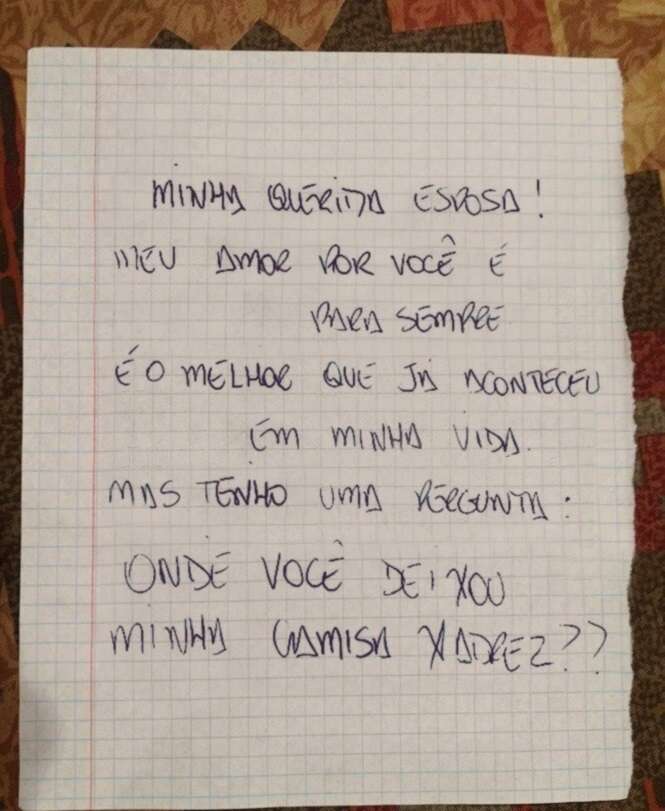 MINHA QUERIDA ESPOSA!
MEU AMOR POR VOCÊ É
PARA SEMPRE
É O MELHOR QUE JÁ ACONTECEU
EM MINHA VIDA.
MAS TENHO UMA PERGUNTA:
ONDE VOCÊ DEIXOU
MINHA CAMISA XADREZ??